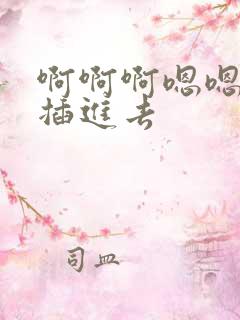 啊啊啊嗯嗯
插進去
司皿